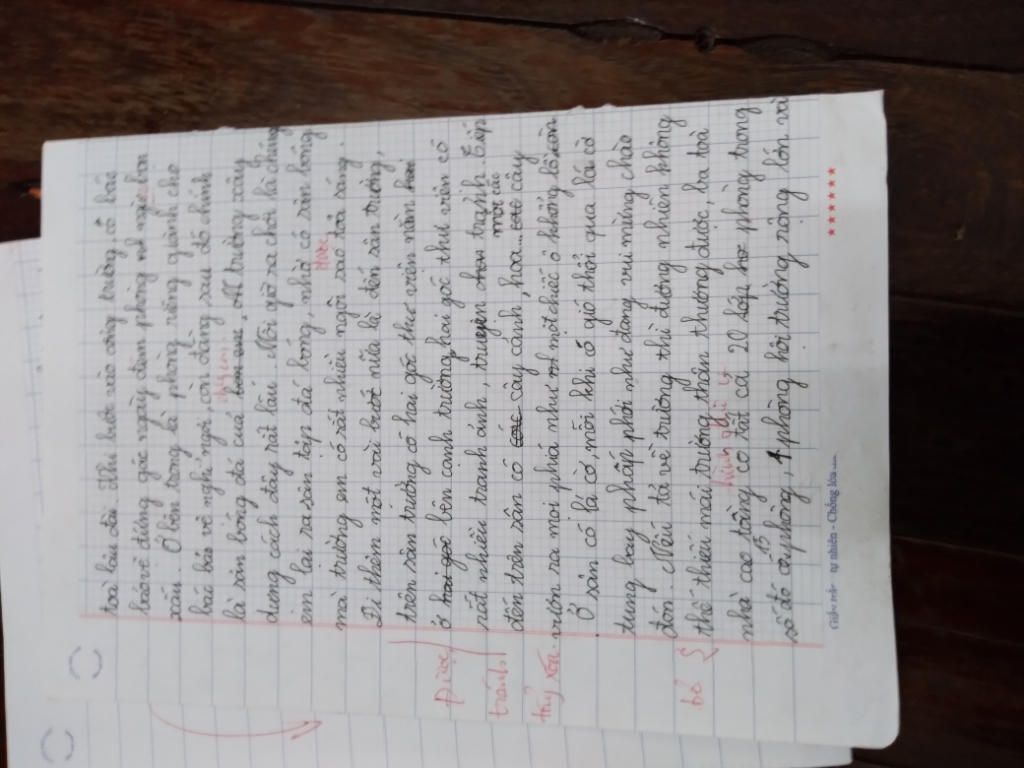 toà lâu đài. Khi bước vào cổng trường có bác
bảo vệ đứng gác ngày đêm phòng người
xấu. Ở bên trong là phòng riêng giành cho
bác bảo vệ nghỉ ngơi, còn đằng sau đó chính
là sân bóng đá của trường xây
dựng cách đây rất lâu. Mỗi giờ ra chơi là chúng
em lại ra sân tập đá bóng, nhờ có sân bóng
mà trường em có rất nhiều ngôi sao toả sáng.
Đi thêm một vài bước nữa là đến sân trường,
trên sân trường có hai gốc thư viện nằm
ở hai gốc bên cạnh trường, hai gốc thư viên có
rất nhiều tranh ảnh, truyện tranh. Tiếp
mọi các
đến trên sân có các cây cảnh, hoa... cây
vươn ra mọi phía như một chiếc ô khổng lồ, còn
Ở sân có lá cờ, mỗi khi có gió thổi qua lá cờ
tung bay phấp phới như đang vui mừng chào
đón. Nếu tả về trường thì đương nhiên không
thể thiếu mái trường thân thương được, ba toà
nhà cao tầng có tất cả 20 lớp phòng trong
15
số đó có phòng, 1 phòng hội trường rộng lớn và
Được
tránh
tẩy xóa.
bỏ
Giấy tự nhiên - Chống lóa